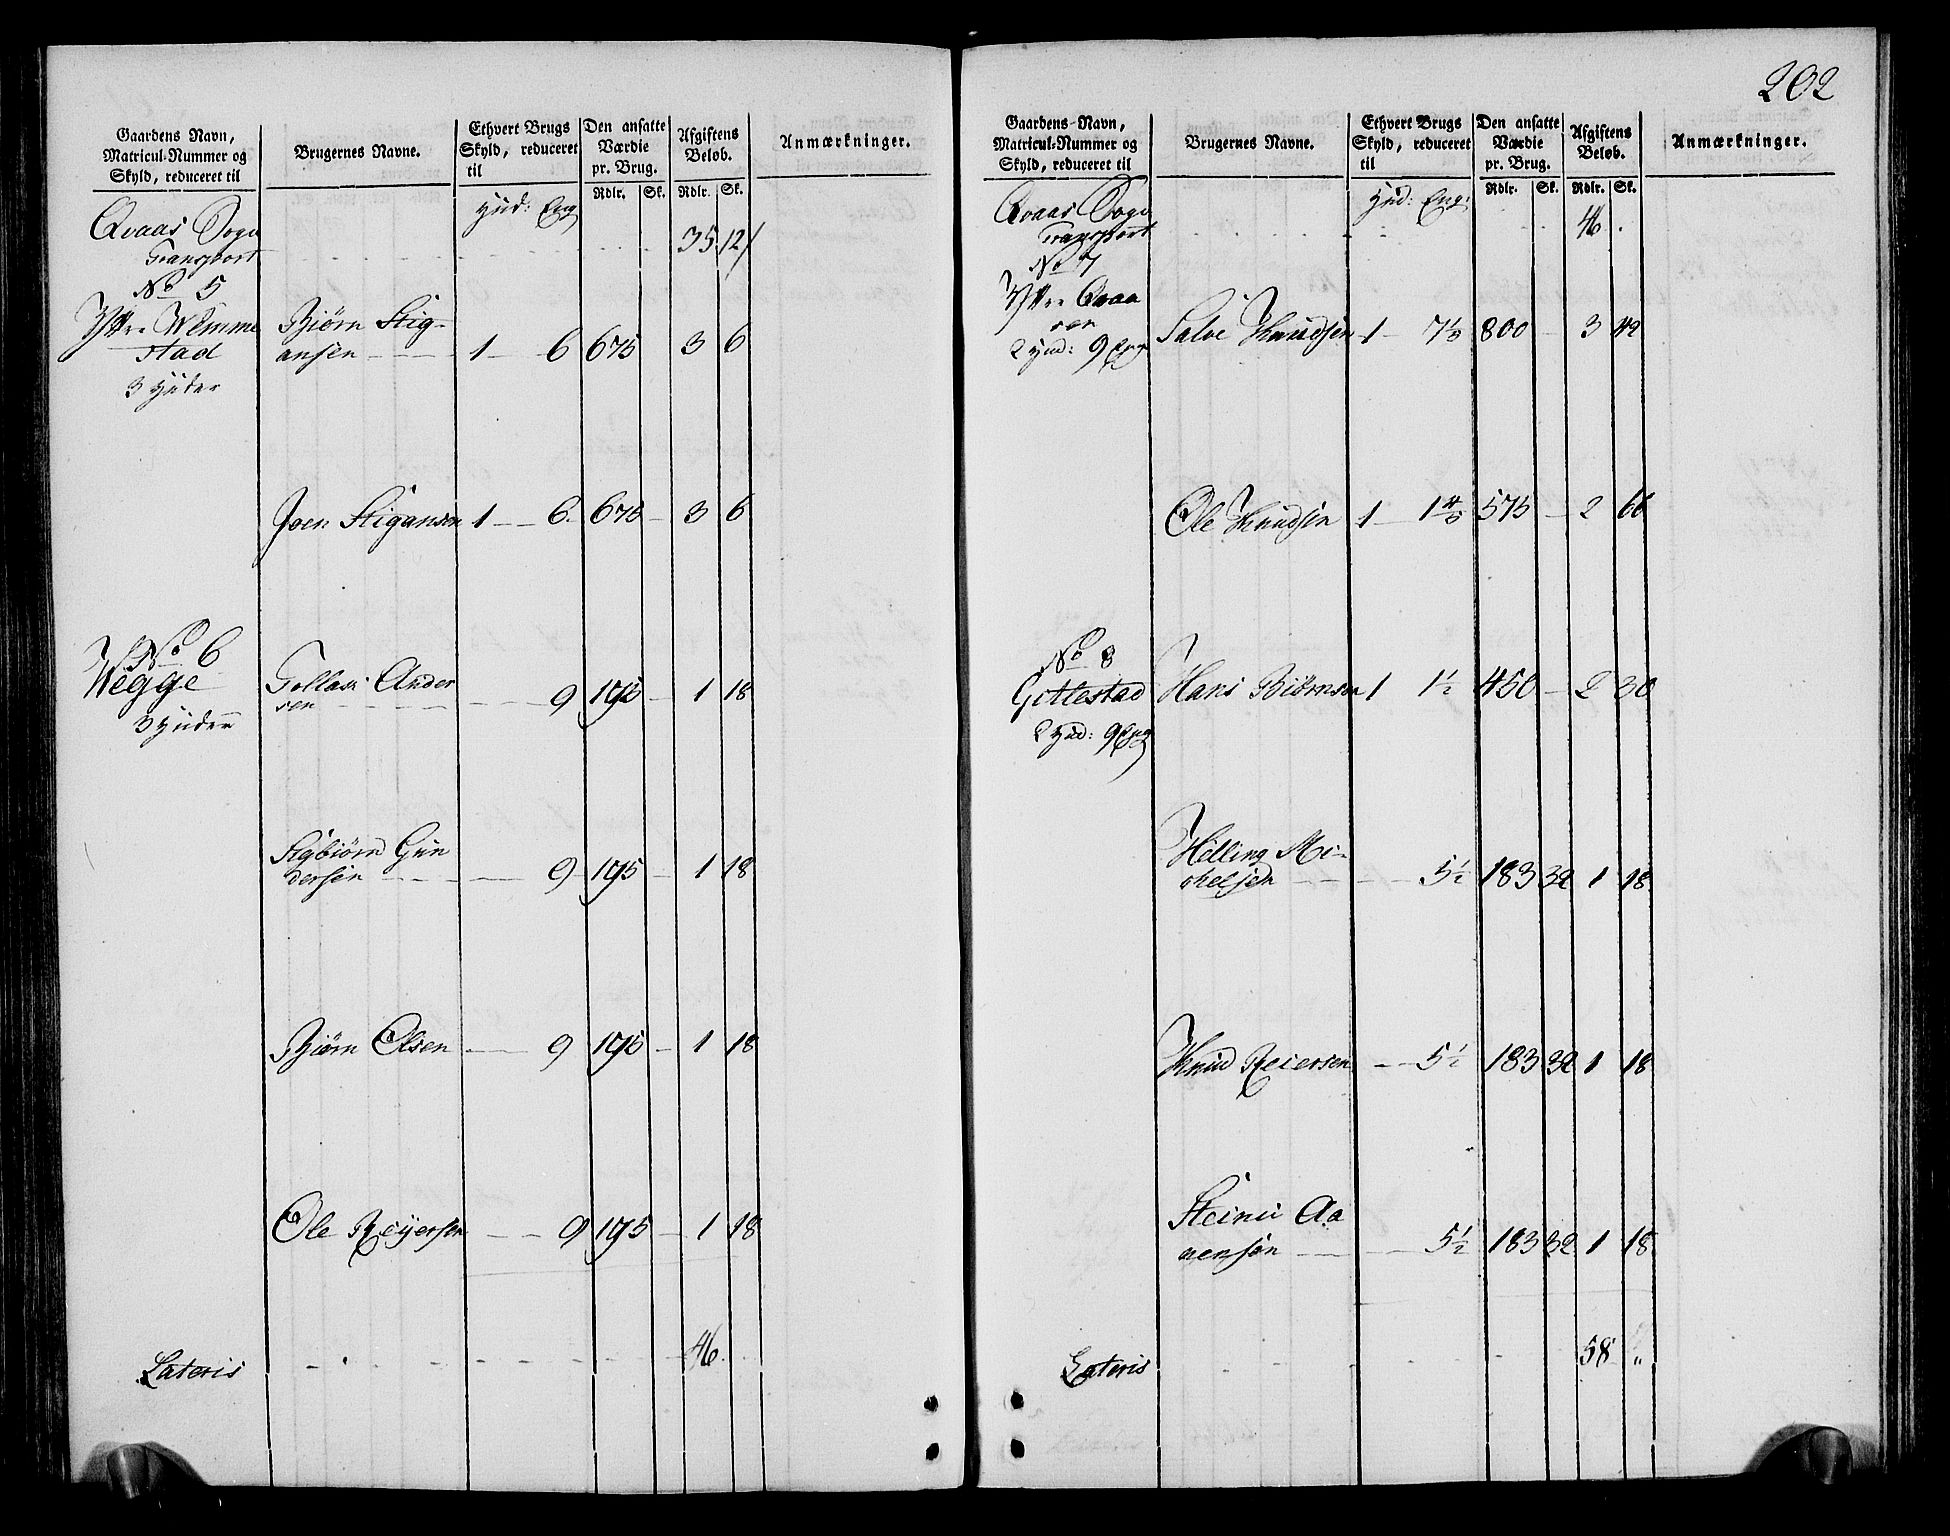 Gaardens Navn,
Matricul-Nummer og
Skyld, reduceret til
Brugernes Navne.
Ethvert Brugs
Skyld, reduceret
til
Den ansatte
Værdie
pr. Brug.
Afgiftens
Beløb.
Anmærkninger.
Rdlr. Sk. Rdlr. Sk.
Hud: Eng
Qvaas Sogn
Transport 35 12
No 5
Yttre Wemme
stad
3 Huder
Biørn Stig-
ansen 1 6 675 3 6
Joen Stigansen 1 6 675 3 6
No 6
Wegge
3 Huder
Tollas Ander
sen 9 195 1 18
Stigbiørn Gun
dersen 9 195 1 18
Biørn Olsen 9 195 1 18
Ole Reyersen 9 195 1 18
Lateris 46
202
Gaardens-Navn,
Matricul-Nummer og
Skyld, reduceret til
Brugernes Navne.
Ethvert Brugs
Skyld, reduceret
til
Den ansatte
Værdie
pr. Brug.
Afgiftens
Beløb.
Anmærkninger.
Rdlr. Sk. Rdlr. Sk.
Hud: Eng:
Qvaas Sogn
Transport 46
No 7
Yttre Qvaa
sen
2 Hud: 9 Eng
Salve Knudsen 1 7⅓ 800 3 42
Ole Knudsen 1 1⅘ 575 2 66
No 8
Gittlestad
2 Hud: 9 Eng
Hans Biørnsen 1 1½ 450 2 30
Helling Mi-
chelsen 5½ 183 32 1 18
Knud Reiersen 5½ 183 32 1 18
Steini Aa
nensen 5½ 183 32 1 18
Lateris 58 "